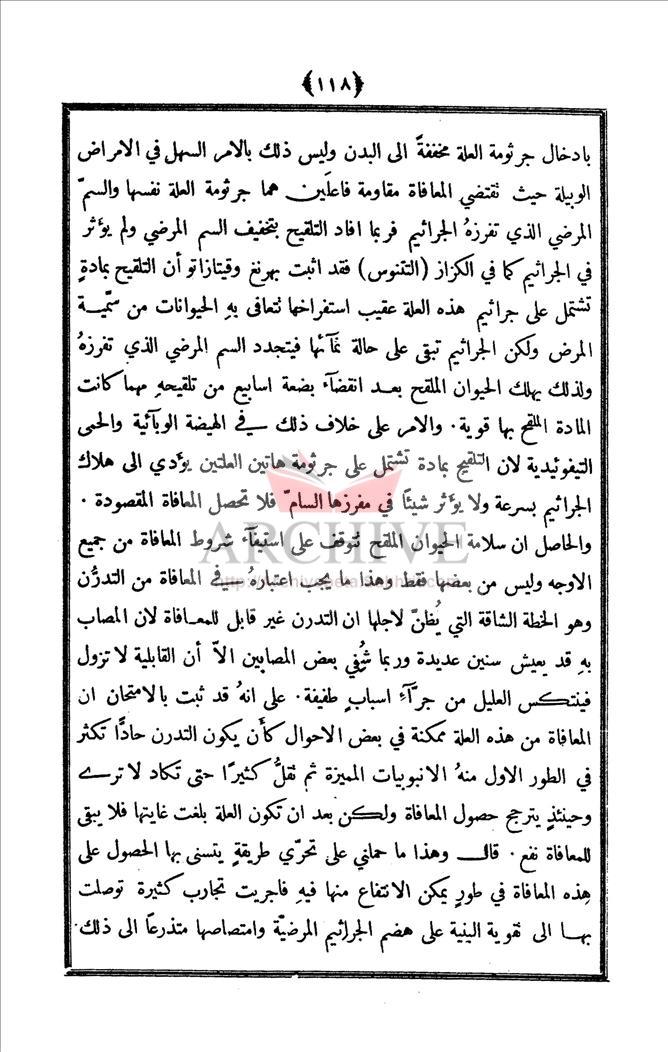 ﴿١١٨﴾
بادخال جرثومة العلة مخففةً الى البدن وليس ذلك بالامر السهل في الامراض
الوبيلة حيث نقتضي المعافاة مقاومة فاعلَين هما جرثومة العلة نفسها والسمّ
المرضي الذي تفرزهُ الجراثيم فربما افاد التلقيح بتخفيف السم المرضي ولم يؤثر
في الجراثيم كما في الكزاز (التتنوس) فقد اثبت بهرنغ وقيتازاتو أن التلقيح بمادةٍ
تشتمل على جراثيم هذه العلة عقيب استفراخها نتعافى بهِ الحيوانات من سمّيـة
المرض ولكن الجراثيم تبقى على حالة نمَآئها فيتجدد السم المرضي الذي تفرزهُ
ولذلك يهلك الحيوان الملقح بعـد انقضآء بضعة اسابيع من تلقيحهِ مهما كانت
المادة الملقح بها قوية ٠ والامر على خلاف ذلك في الهيضة الوبآئية والحمى
التيفوئيدية لان التلقيح بمادة تشتمل على جرثومة هاتين العلتين يؤدي الى هلاك
الجراثيم بسرعة ولا يؤثر شيئًا في مفرزها السامّ فلا تحصل المعافاة المقصودة ٠
ARCHIVE
والحاصل ان سلامة الحيوان الملقح نتوقف على استيفآء شروط المعافاة من جميع
الاوجه وليس من بعضها فقط وهذا ما يجب اعتبارهُ في المعافاة من التدرُّن
وهو الخطة الشاقة التي يُظنّ لاجلها ان التدرن غير قابل للمعـافاة لان المصاب
بهِ قد يعيش سنين عديدة وربما شُفي بعض المصابين الاّ أن القابلية لا تزول
فينتكس العليل من جرّآءِ اسبابٍ طفيفة ٠ على انهُ قد ثبت بالامتحان ان
المعافاة من هذه العلة ممكنة في بعض الاحوال كأن يكون التدرن حادًّا تكثر
في الطور الاول منهُ الانبوبيات المميزة ثم نقلُّ كثيرًا حتى تكاد لا ترے
وحينئذٍ يترجح حصول المعافاة ولكن بعد ان تكون العلة بلغت غايتها فلا يبقى
للمعافاة نفع ٠ قال وهذا ما حملني على تحرّي طريقةٍ يتسنى بها الحصول على
هذه المعافاة في طورٍ يمكن الانتفاع منها فيهِ فاجريت تجارب كثيرة توصلت
بهـا الى نقوية البنية على هضم الجراثيم المرضيّة وامتصاصها متذرعًا الى ذلك